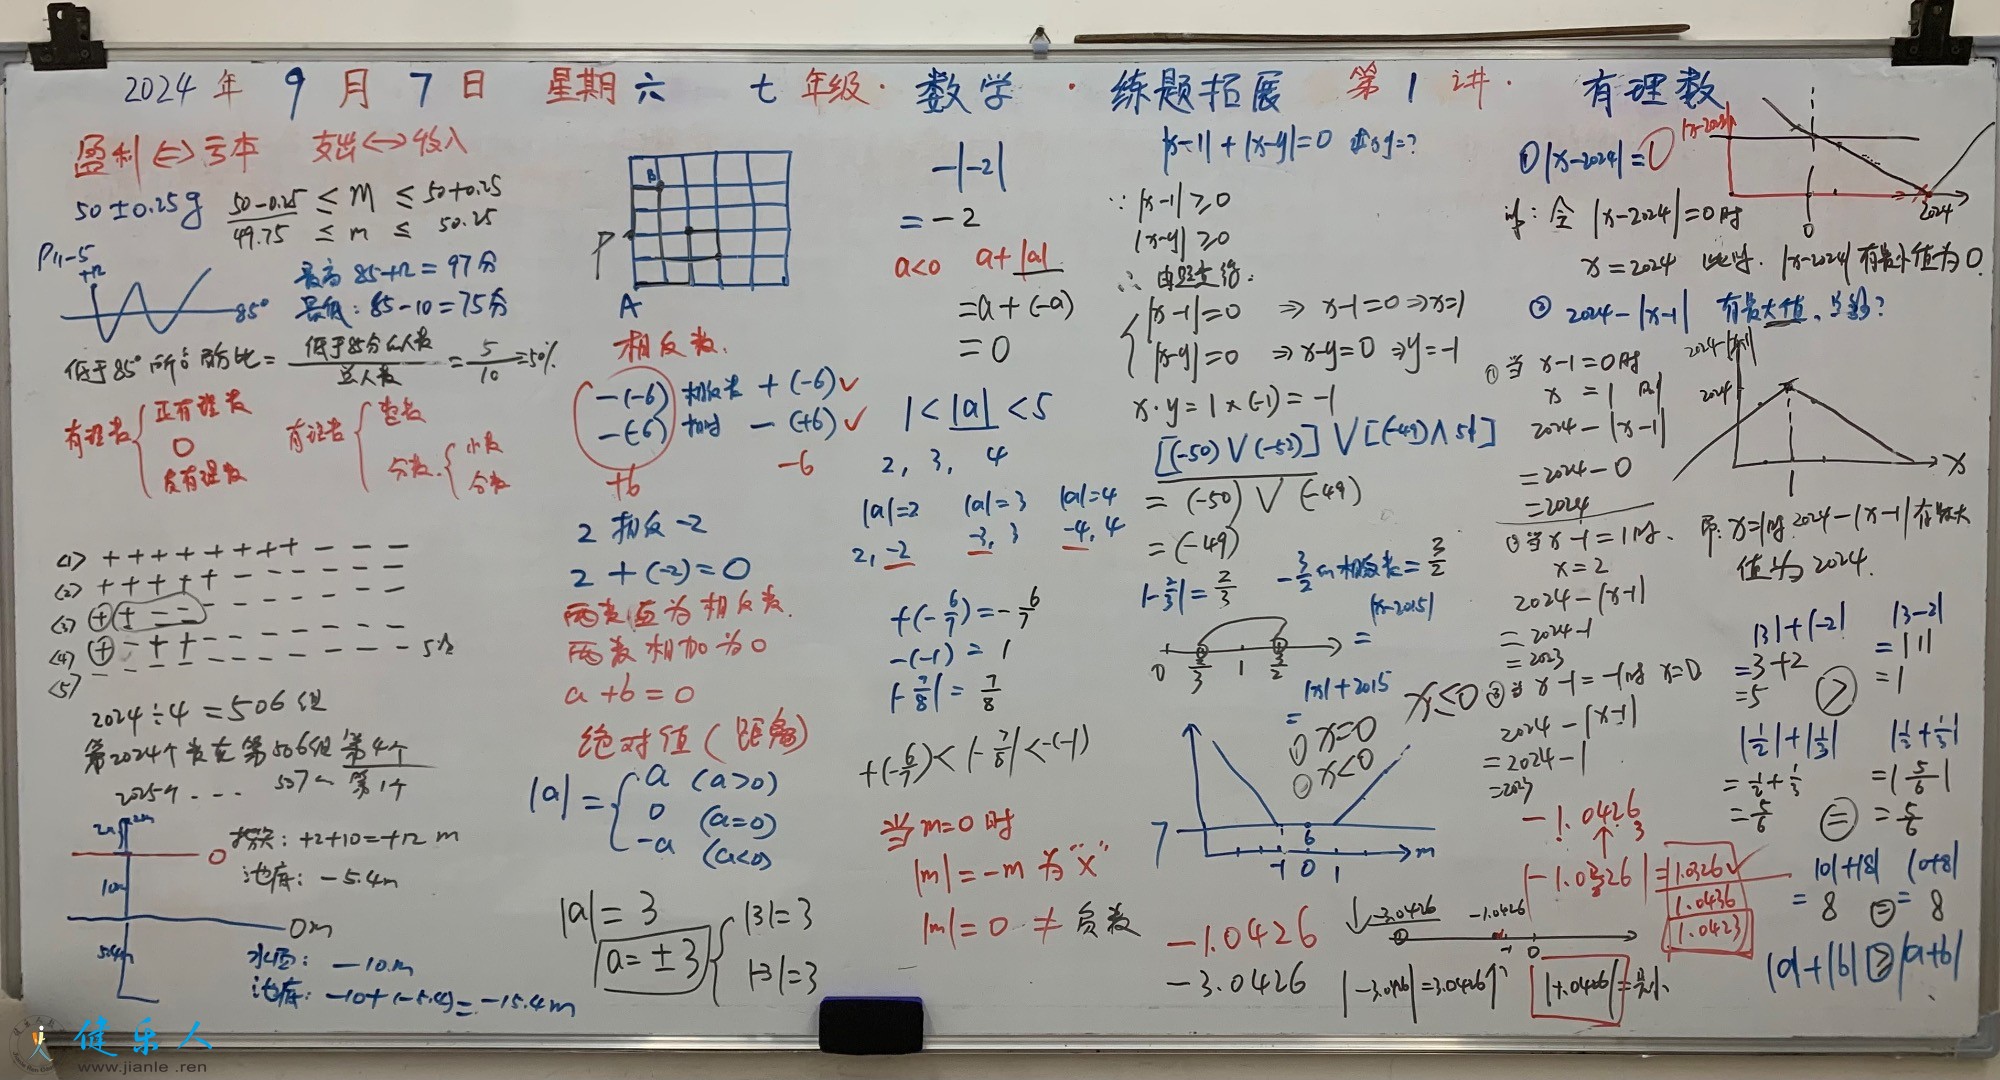 2024年 9月7日 星期六 七年级·数学·练题拓展 第1讲· 有理数
盈利⇔亏本 支出↔收入
50±0.25g 50-0.25 ≤ M ≤ 50+0.25
49.75 ≤ m ≤ 50.25
P11-5
+12
85°
最高 85+12=97分
最低: 85-10=75分
低于85° 所占百分比= 低于85分的人数/总人数 = 5/10 =50%
有理数 { 正有理数
0
负有理数
有理数 { 整数
分数 { 小数
分数
<1> + + + + + + + + - - - -
<2>
<3>
<4>
<5>
5个
2024÷4=506组
第2024个数在第506组第4个
2025个 ... 507 第1个
2m
0
10m
0m
5.4m
+2+10=+12 m
池底: -5.4m
水面: -10m
池底: -10+(-5.4)=-15.4m
B
P
A
相反数.
-(-6) 相反数 +(-6)✓
-(-6) 相同 -(+6)✓
+6
-6
2 相反 -2
2+(-2)=0
两数互为相反数.
两数相加为0
a+b=0
绝对值(距离)
|a|= { a (a>0)
0 (a=0)
-a (a<0)
|a|=3
a=±3 { |3|=3
|-3|=3
-|-2|
=-2
a<0 a+|a|
=a+(-a)
=0
1<|a|<5
2, 3, 4
|a|=2 |a|=3 |a|=4
2,-2 -3,3 -4,4
+(-6/7)=-6/7
-(-1)=1
|-7/8|=7/8
+(-6/7)<|-7/8|<-(-1)
当m=0时
|m|=-m 为"x"
|m|=0≠负数
|x-1|+|x-y|=0 求xy=?
∵ |x-1|≥0
|x-y|≥0
∴ 由题意得:
{ |x-1|=0 ⇒ x-1=0 ⇒ x=1
|x-y|=0 ⇒ x-y=0 ⇒ y=-1
x·y=1×(-1)=-1
[(-50)∨(-52)]∨[(-49)∧51]
=(-50)∨(-49)
=(-49)
|-2/3|=2/3 -3/2的相反数=3/2
0 2/3 1 3/2
|x-2015|
=
|x|+2015
=
x≤0
① x=0
② x<0
7
6
-1 0 1 m
-1.0426
-3.0426
①|x-2024|=0
解: 令 |x-2024|=0时
x=2024 此时. |x-2024|有最小值为0.
|x-2024|
0
2024
② 2024-|x-1| 有最大值.
①当 x-1=0时
x=1时
2024-|x-1|
=2024-0
=2024
②当x-1=1时.
x=2
2024-|x-1|
=2024-1
=2023
③当x-1=-1时 x=0
2024-|x-1|
=2024-1
=2023
2024-|x-1|
2024
1
x
即:x=1时 2024-|x-1|有最大
值为2024.
|3|+|-2| |3-2|
=3+2 =|1|
=5 > =1
|1/2|+|1/3| |1/2+1/3|
=1/2+1/3 =|5/6|
=5/6 = =5/6
|0|+|8| |0+8|
=8 = =8
|a|+|b| ≥ |a+b|
-1.0426
3
|-1.0326|=1.0326✓
1.0436
1.0423
-3.0426 -1.0426
-1 0
|-3.0426|=3.0426 |-1.0426|=最小
健乐人
www.jianle.ren